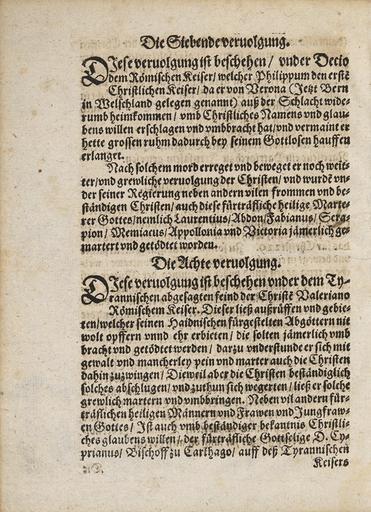 Die Siebende veruolgung.
DIese veruolgung ist beschehen / vnder Decio
dem Römischen Keiser / welcher Philippum den erstē
Christlichen Keiser / da er von Verona (Jetzt Bern
in Welschland gelegen genannt) auß der Schlacht wide-
rumb heimkommen / vmb Christliches Namens vnd glau-
bens willen erschlagen vnd vmbbracht hat / vnd vermaint er
hette grossen ruhm dadurch bey seinem Gottlosen hauffen
erlanget.
Nach solchem mord erreget vnd beweget er noch weit-
ter / vnd grewliche veruolgung der Christen / vnd wurdē vn-
der seiner Regierung neben andern vilen frommen vnd be-
ständigen Christen / auch diese fürträfliche heilige Marte-
rer Gottes / nemlich Laurentius / Abdon / Fabianus / Sera-
pion / Memiacus / Appollonia vnd Victoria jämerlich ge-
martert vnd getödtet worden.
Die Achte veruolgung.
DIese veruolgung ist beschehen vnder dem Ty-
rannischen abgesagten feind der Christē Valeriano
Römischem Keiser. Dieser ließ außrüffen vnd gebie-
ten / welcher seinen Haidnischen fürgestelten Abgöttern nit
wolt opffern vnnd ehr erbieten / die solten jämerlich vmb
bracht vnd getödtet werden / darzu vnderstunde er sich mit
gewalt vnd mancherley pein vnd marter auch die Christen
dahin zuzwingen / Dieweil aber die Christen beständiglich
solches abschlugen / vnd zuthun sich wegerten / ließ er solche
grewlich martern vnd vmbbringen. Neben vil andern für-
träflichen heiligen Männern vnd Frawen vnd Jungfraw-
en Gottes / Ist auch vmb beständiger bekantnis Christli-
ches glaubens willen / der fürträfliche Gottselige D. Cy-
prianus / Bischoff zu Carthago / auff deß Tyrannischen
Keisers